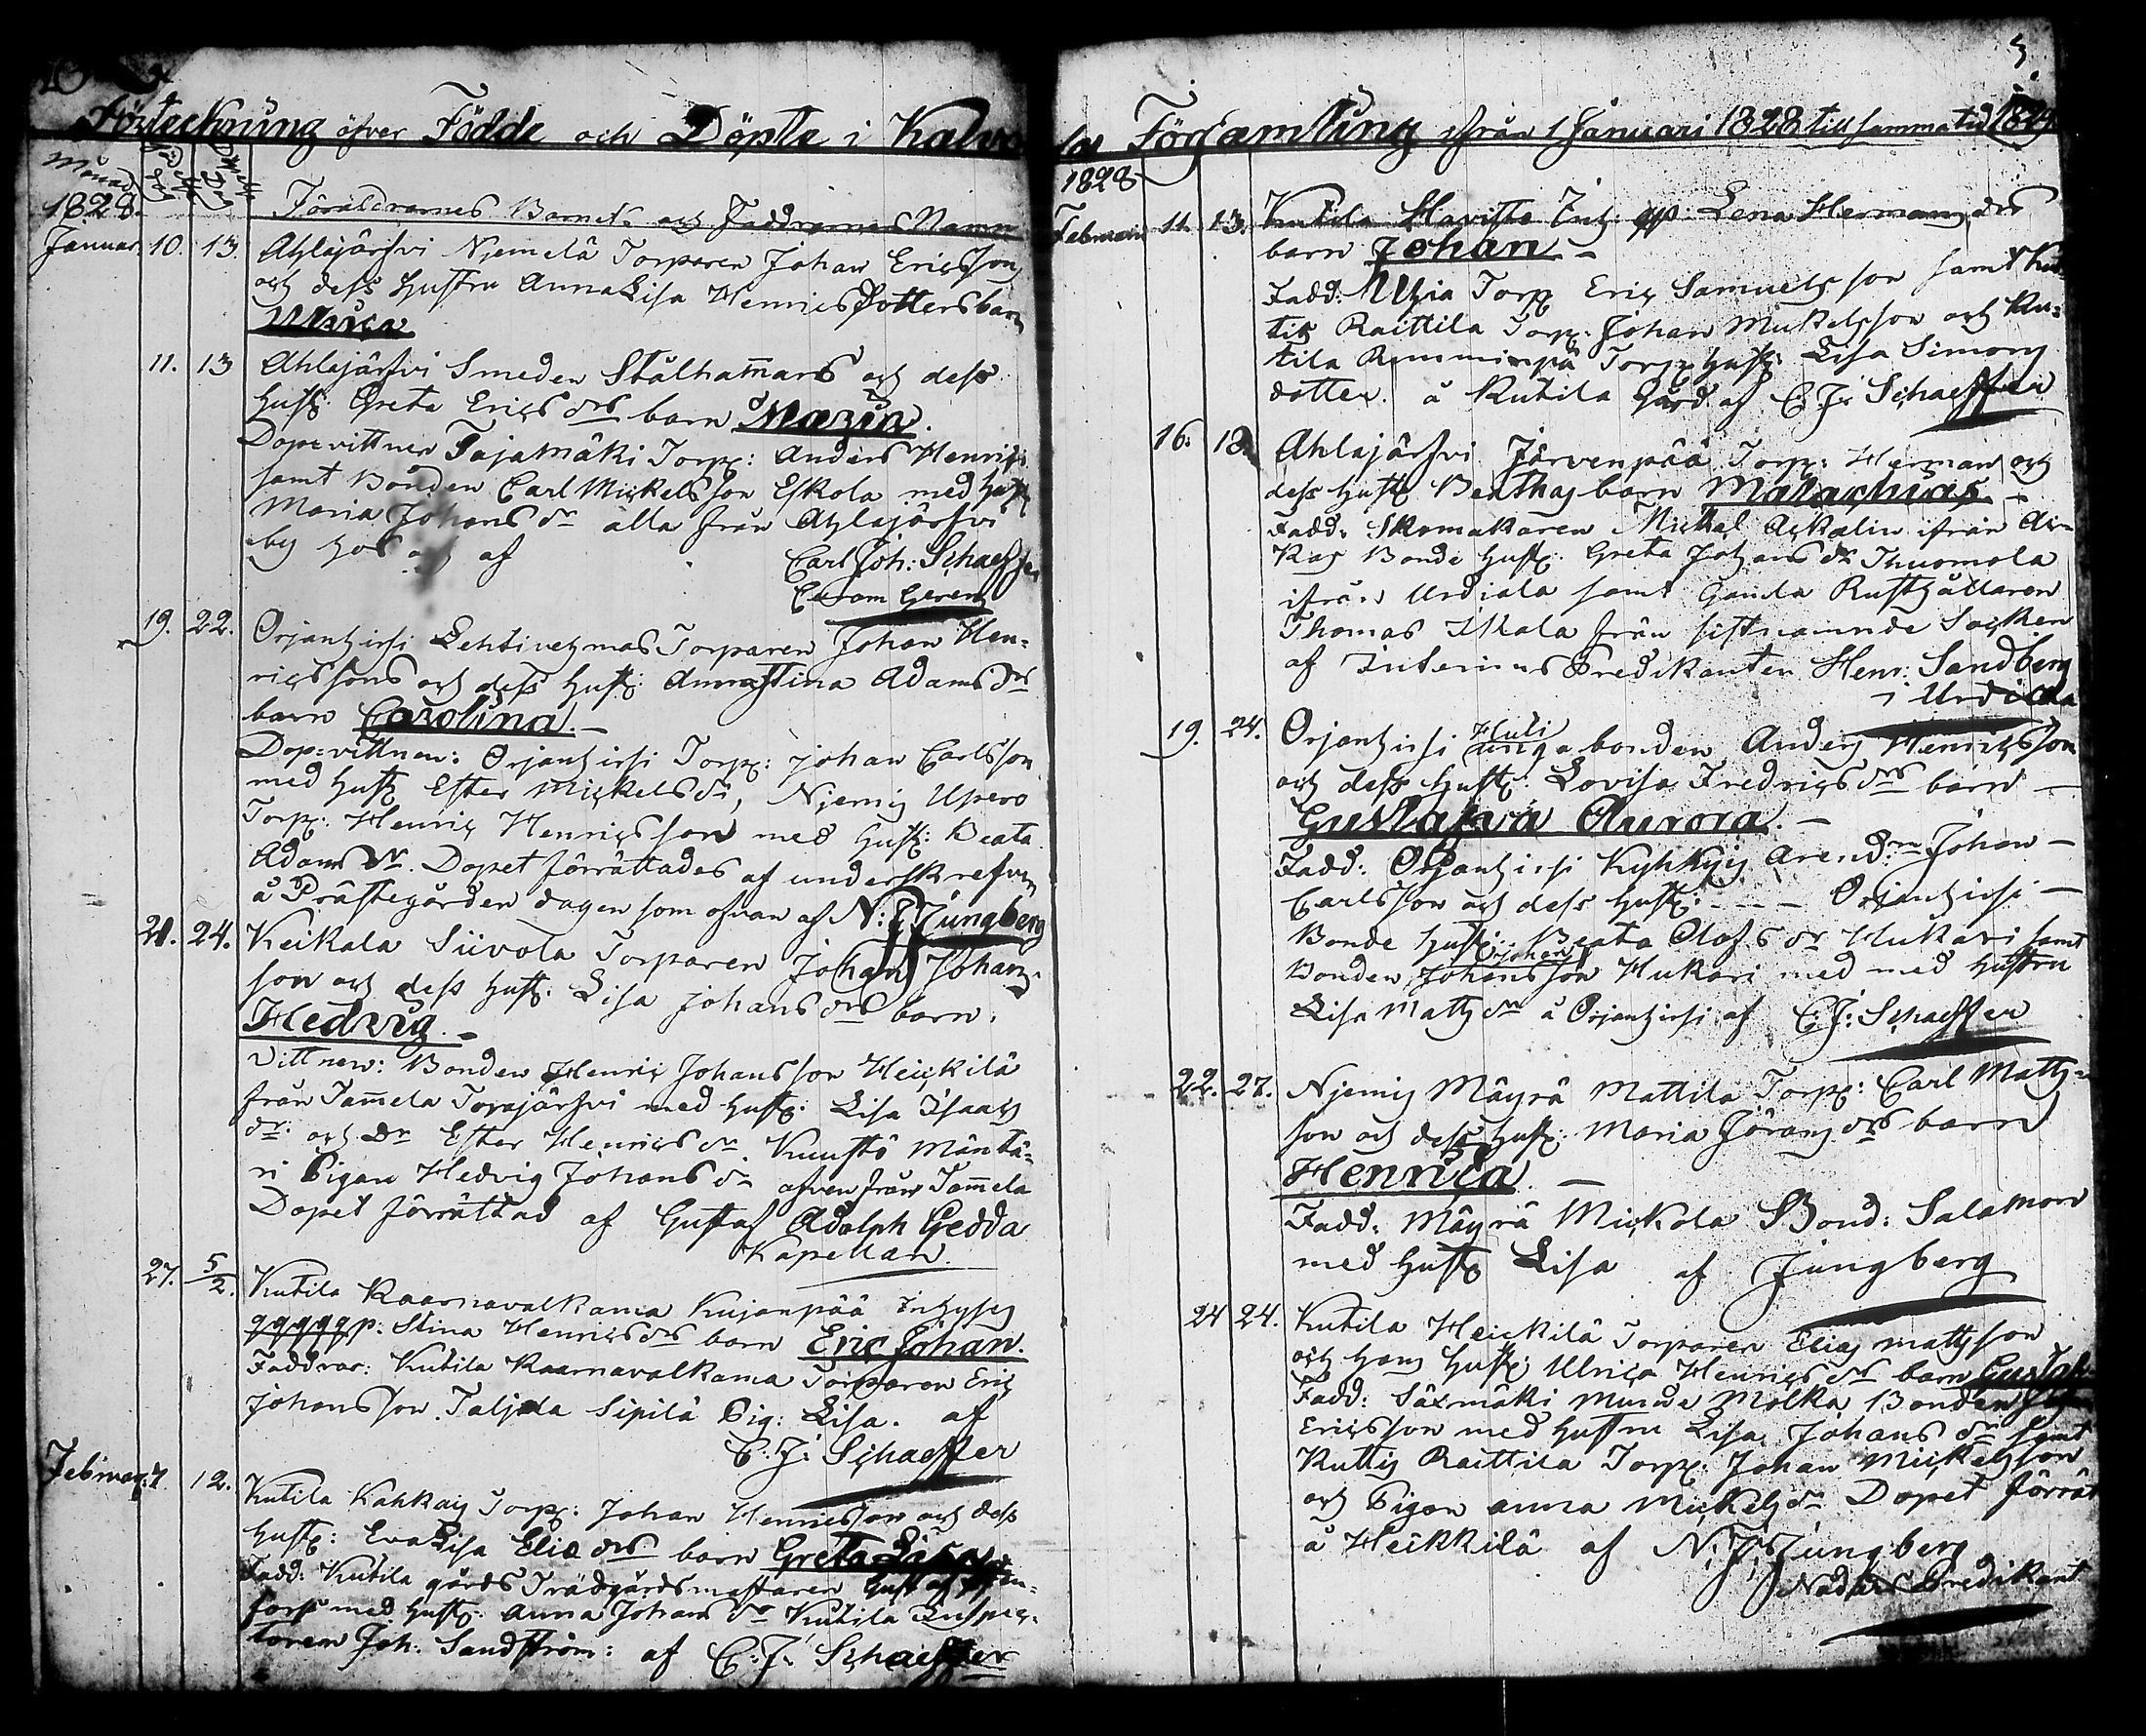 Förteckning öfver Födde och Döpte i Kalvo
Månad
1828.
Föräldrarnes Barnets och Faddrarnes Namn
Januar. 10. 13. Ahlajärfvi Njemelä Torparen Johan Ericsson
och dess Hustru Anna Lisa Henrics Dotters barn
Maria
11. 13 Ahlajärfvi Smeden Stålhamars och dess
Hust: Greta Erics drs barn Maria.
Dopsvittnen Tajamäki Torp: Anders Henrics
samt Bonden Carl Mickelsson Eskola med Hust
Maria Johans dr alla från Ahlajärfvi
by af
Carl Joh: Schaeffer
19. 22. Orjanhirsi Lehtivehmas Torparen Johan Hen-
ricssons och dess Hust: Annastina Adams drs
barn Carolina. -
Dop: vittnen: Orjanhirsi Torp: Johan Carlsson
med Hust: Ester Mickels dr, Njemis Upero
Torp: Henric Henricsson med Hust: Beata
Adams dr. Dopet förrättades af underskrefven
å Prästegården dagen som ofvan af N: J Ljungberg
21. 24. Keikala Siivola Torparen Johan Johans-
son och dess Hust: Lisa Johans drs barn.
Hedvig. -
Vittnen: Bonden Henric Johansson Heickilä
från Tamela Torajärfvi med Hust: Lisa Isaacs
dr. och Dr Ester Henrics dr. Kuustö Mäntä-
ri Pigan Hedvig Johans dr äfven från Tamela
Dopet förrättad af Gustaf Adolph Gedda
Kapellan.
27. 5/2. Kutila Kaarnavalkama Kujanpää Inhyses
qqqqqp: Stina Henrics drs barn Eric Johan.
Faddrar: Kutila Kaarnavalkama Torparen Eric
Johansson. Taljala Sipilä Pig: Lisa. af
C: J: Schaeffer
Februar: 7 12. Kutila Kahkais Torp: Johan Henricsson och dess
Hust: Eva Lisa Elie drs barn Greta Lisa
Fadd: Kutila gårds Trädgårdsmästaren Gustaf
fors med Hust: Anna Johans dr Kutila Inspec-
toren Joh: Sandström: af C: J: Schaeffer
3.
la Församling ifrån 1 Januari 1828 till samma tid 1829
1828
Februari 11. 13. Kutila Havisto Inh: qp: Lena Hermans drs
barn Johan -
Fadd: Torp Eric Samuelsson samt Kut
tis Raittila Torp: Johan Mickelsson och Ku-
tila Torp: Hust: Lisa Simons
dotter. å Kutila Gård af C. J: Schaeffer
16. 18. Ahlajärfvi Järvenpää Torp: Herman och
dess Hust: Berthas barn Malachias -
Fadd: Skomakaren Mickel Ackalin ifrån Ac-
kas Bonde Hust: Greta Johans dr Thuomola
ifrån Urdiala samt Gamla Rusthållaren
Thomas Ikala från sistnämnde Socken
af Interims Predikanten Henr: Sandberg
i Urdiala
19. 24. Orjanhirsi Huti unga bonden Anders Henricsson
och dess Hust: Lovisa Fredrics drs barn -
Gustafva Aurora. -
Fadd: Orjanhirsi Kyhkyis Arend:n Johan -
Carlsson och dess Hust: - - - Orjanhirsi -
Bonde Hust: Beata Olofs dr Hukari samt
Bonden Johan Johansson Hukari med med Hustru
Lisa Matts dr å Orjanhirsi af C: J: Schaeffer
22. 27. Njemis Mäyrä Mattila Torp: Carl Matts-
son och dess Hust: Maria Görans drs barn
Henrica. -
Fadd: Mäyrä Mickola Bond: Salamon
med Hust: Lisa af Ljungberg
24 24. Kutila Heickilä Torparen Elias Mattsson
och hans Hust: Ulrica Henrics drs barn Gustaf.
Fadd: Säxmäki Mulka Bonden
Ericsson med Hustru Lisa Johans dr samt
Kuttis Raittila Torp: Johan Mickelsson
och Pigan Anna Mickels dr Dopet förrät
å Heikkilä af N: J: Ljungberg
Nådårs Predikant